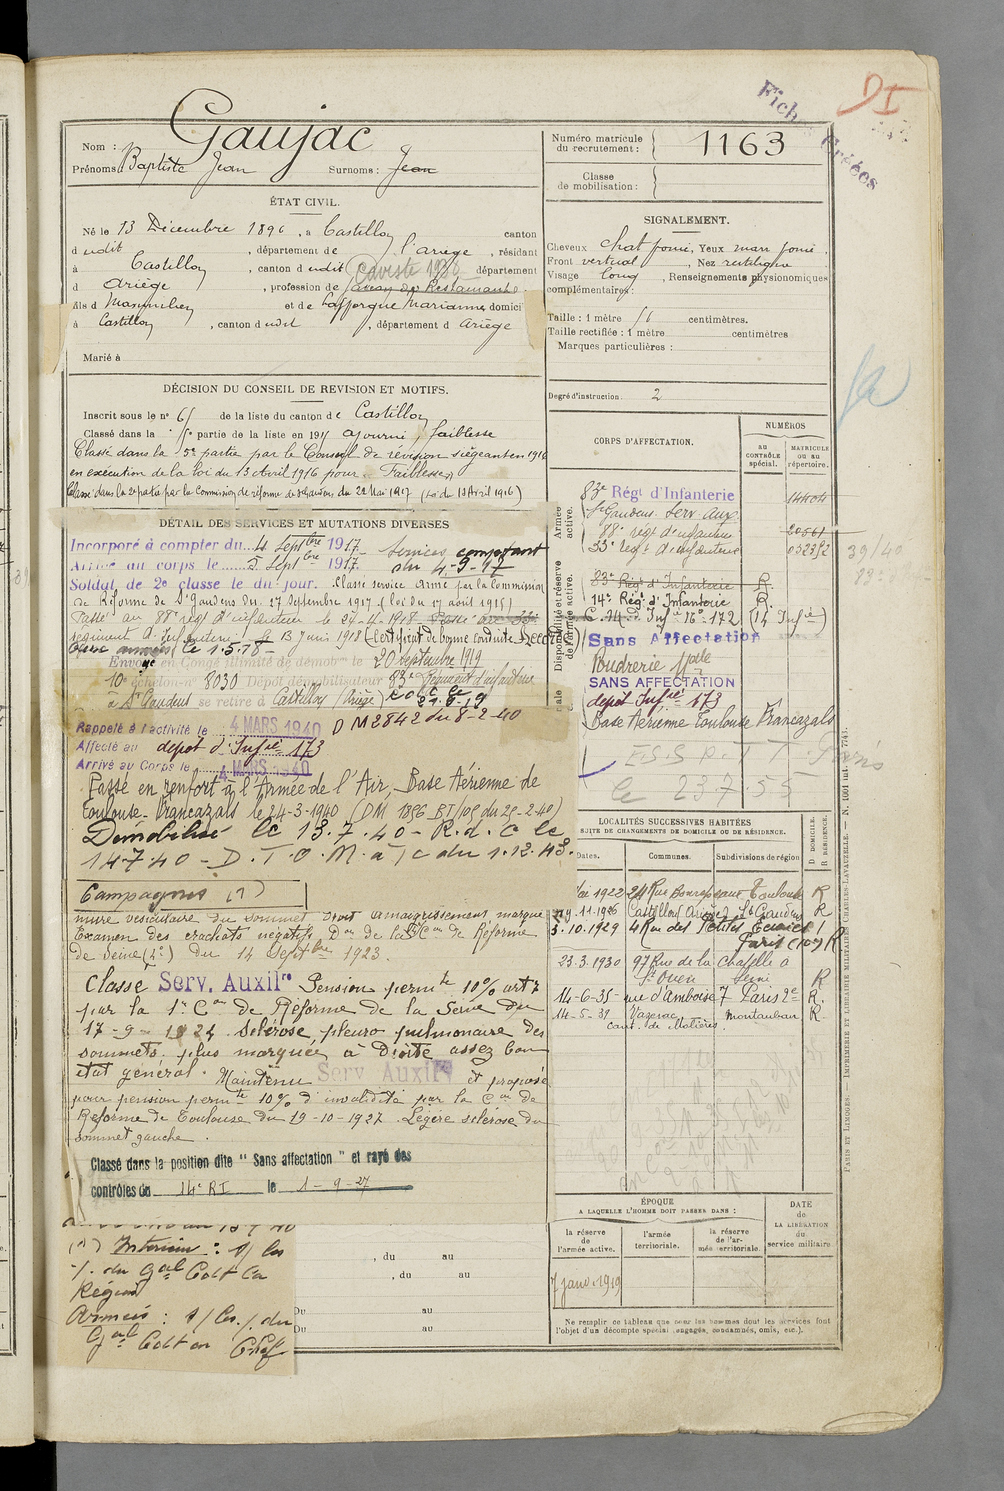 DI
Fiches créées
Nom : Gaujac
Prénoms : Baptiste Jean Surnoms : Jean
Numéro matricule du recrutement : 1163
Classe de mobilisation :
ÉTAT CIVIL.
Né le 13 Décembre 1896, à Castillon canton
dudit, département de l'ariège, résidant
à Castillon, canton dudit Caviste 1930 département
d Ariège, profession de garçon de Restaurant
fils d Maximilien et de Lafforgue Marianne domiciliés
à Castillon, canton dudit, département d Ariège
Marié à
SIGNALEMENT.
Cheveux chat foncé, Yeux marr foncé
Front vertical, Nez rectiligne
Visage long, Renseignements physionomiques
complémentaires :
Taille : 1 mètre 61 centimètres.
Taille rectifiée : 1 mètre centimètres
Marques particulières :
Degré d'instruction : 2
DÉCISION DU CONSEIL DE REVISION ET MOTIFS.
Inscrit sous le n° 61 de la liste du canton de Castillon
Classé dans la 5e partie de la liste en 1915 ajourné, faiblesse
Classé dans la 5e partie par le Conseil de révision siégeant en 1916
en exécution de la loi du 13 Avril 1916 pour. Faiblesse
Classé dans la 2e partie par la Commission de réforme de St Gaudens du 22 Mai 1917 (Loi du 13 Avril 1916)
DÉTAIL DES SERVICES ET MUTATIONS DIVERSES
Incorporé à compter du 4 Septbre 1917 - Services comptant
Arrivé au corps le 5 Septbre 1917. du 4-9-17
Soldat de 2e classe le du jour. Classé service Armé par la Commission
de Réforme de St Gaudens du 17 Septembre 1917 (loi du 17 août 1915)
Passé au 88e régt d'infanterie le 24-4-1918 Passé au 33e
régiment d'infanterie le 13 juin 1918 (Certificat de bonne conduite Accordé)
aux armées le 1.5.18 -
Envoyé en Congé illimité de démobon le 20 septembre 1919
10e échelon n° 8030 Dépôt démobilisateur 83e Régiment d'infanterie
à St Gaudens se retire à Castillon (Ariège) R d C le 21-9-19
Rappelé à l'activité le 4 MARS 1940 DM 2842 du 8-2-40
Affecté au dépôt d'Infie 173
Arrivé au Corps le 4 MARS 1940
Passé en renfort à l'Armée de l'Air, Base Aérienne de
Toulouse-Francazals le 24-3-1940
Démobilisé le 13.7.40 - R.d.C le
14.7.40 - D.T.O.M. à Tc du 1.12.43.
Campagnes (1)
mure vésiculaire du sommet droit amaigrissement marqué
Examen des crachats négatifs Don de la 3e Con de Réforme
de Seine (2e) du 14 Septbre 1923.
Classé Serv. Auxilre Pension permte 10% art 7
par la 1e Con de Réforme de la Seine du
17-9-1924 Sclérose pleuro pulmonaire des
sommets, plus marquée à droite assez bon
état général. Maintenu Serv Auxilre et proposé
pour pension permte 10% d'invalidité par la Con de
Réforme de Toulouse du 19-10-1927. Légère sclérose du
sommet gauche.
Classé dans la position dite " Sans affectation " et rayé des
contrôles du 14e RI le 1-9-27
(1) Intérieur :
du Gal Cdt la
Région
Armées :
Gal Cdt en Chef
, du au
, du au
Du au
Du au
CORPS D'AFFECTATION.
NUMÉROS
au contrôle spécial.
MATRICULE ou au répertoire.
Armée active.
Disponibilité et réserve de l'armée active.
83e Régt d'Infanterie
St Gaudens Serv. Aux.
88e régt d'infanterie 20561
33e régt d'infanterie
83e Régt d'Infanterie R.
14e Régt d'Infanterie R.
C. M. d'Infie 16e-172 (14 Infie)
Sans Affectation
Poudrerie
SANS AFFECTATION
dépôt Infie 173
Base Aérienne Toulouse Francazals
E.S.S P.T.T. Paris
le 23.7.55
39/40
LOCALITÉS SUCCESSIVES HABITÉES
PAR SUITE DE CHANGEMENTS DE DOMICILE OU DE RÉSIDENCE.
D. DOMICILE. R. RÉSIDENCE.
Dates. Communes. Subdivisions de région
Mai 1922 24 Rue Bonrepaux Toulouse R
11-1926 Castillon Ariège St Gaudens R
3.10.1929 4 Rue des Petites Ecuries
Paris (10e) R
23.3.1930 97 Rue de la Chapelle à
St Ouen Seine R
14-6-35- rue d'Amboise 7 Paris 2e R.
14-5-39 Vazerac Montauban R.
cant. de Molières.
ÉPOQUE
A LAQUELLE L'HOMME DOIT PASSER DANS :
la réserve de l'armée active.
l'armée territoriale.
la réserve de l'armée territoriale.
DATE de LA LIBÉRATION du service militaire.
7 janv. 1919
Ne remplir ce tableau que pour les hommes dont les services font
l'objet d'un décompte spécial (engagés, condamnés, omis, etc.).
PARIS ET LIMOGES. — IMPRIMERIE ET LIBRAIRIE MILITAIRES CHARLES-LAVAUZELLE. — N. 1001